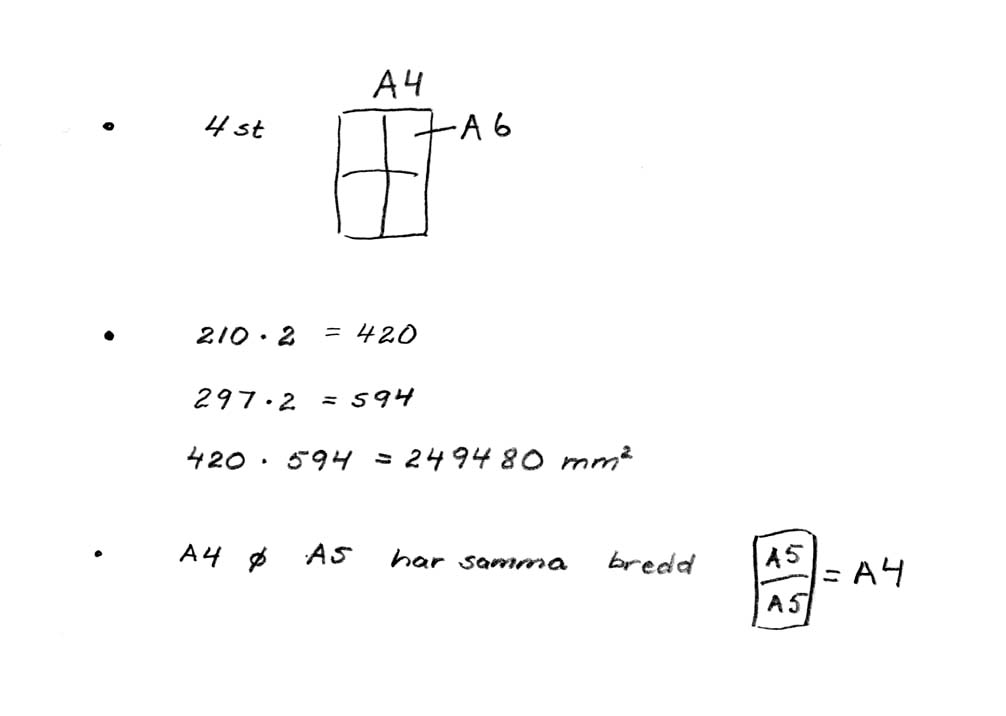 A4
• 4 st A6
• 210 · 2 = 420
297 · 2 = 594
420 · 594 = 249480 mm²
• A4 ∮ A5 har samma bredd A5 / A5 = A4